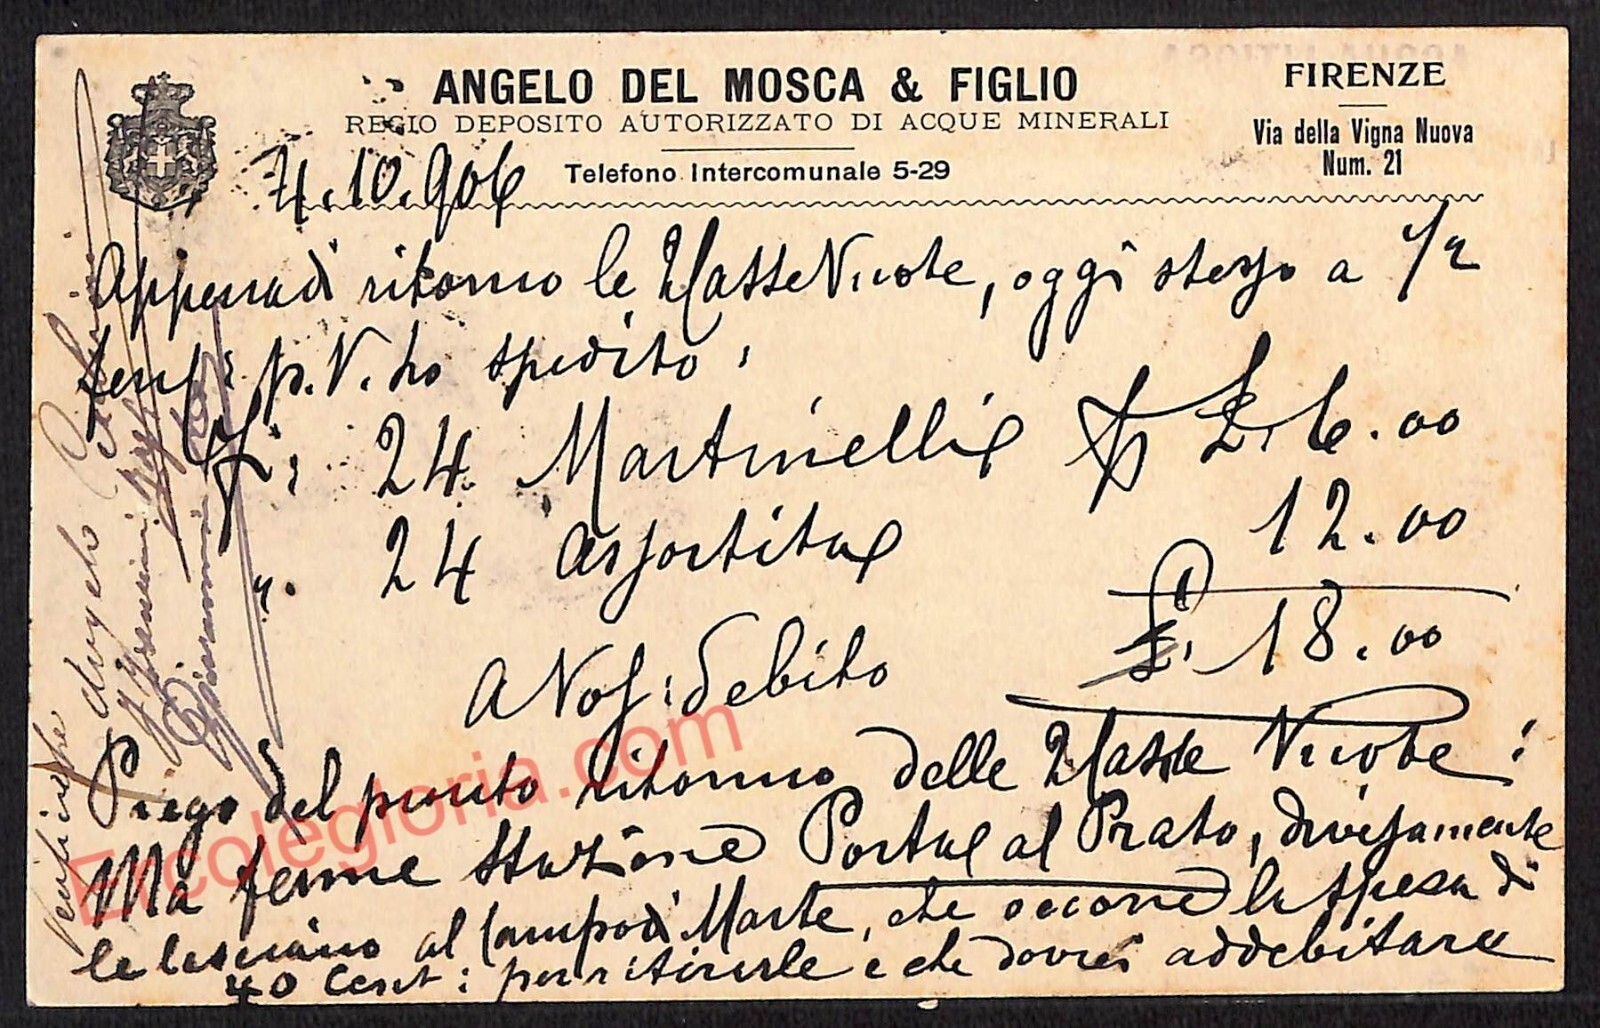 ANGELO DEL MOSCA & FIGLIO
REGIO DEPOSITO AUTORIZZATO DI ACQUE MINERALI
Telefono Intercomunale 5-29
FIRENZE
Via della Vigna Nuova
Num. 21
4.10.906
Appena di ritorno le Casse Vuote, oggi stesso a 1/2
p. V. ho spedito:
24 Martinelli £. 6.00
". 24 assortita 12.00
£. 18.00
A Nos: debito
Prego del pronto ritorno delle Casse Vuote!
Ma ferme stazione Porta al Prato, diversamente
le lasciano al Campo di Marte, che occorre la spesa di
40 Cent: per ritirarle e che dovrei addebitare
Angelo
Ercolegloria.com